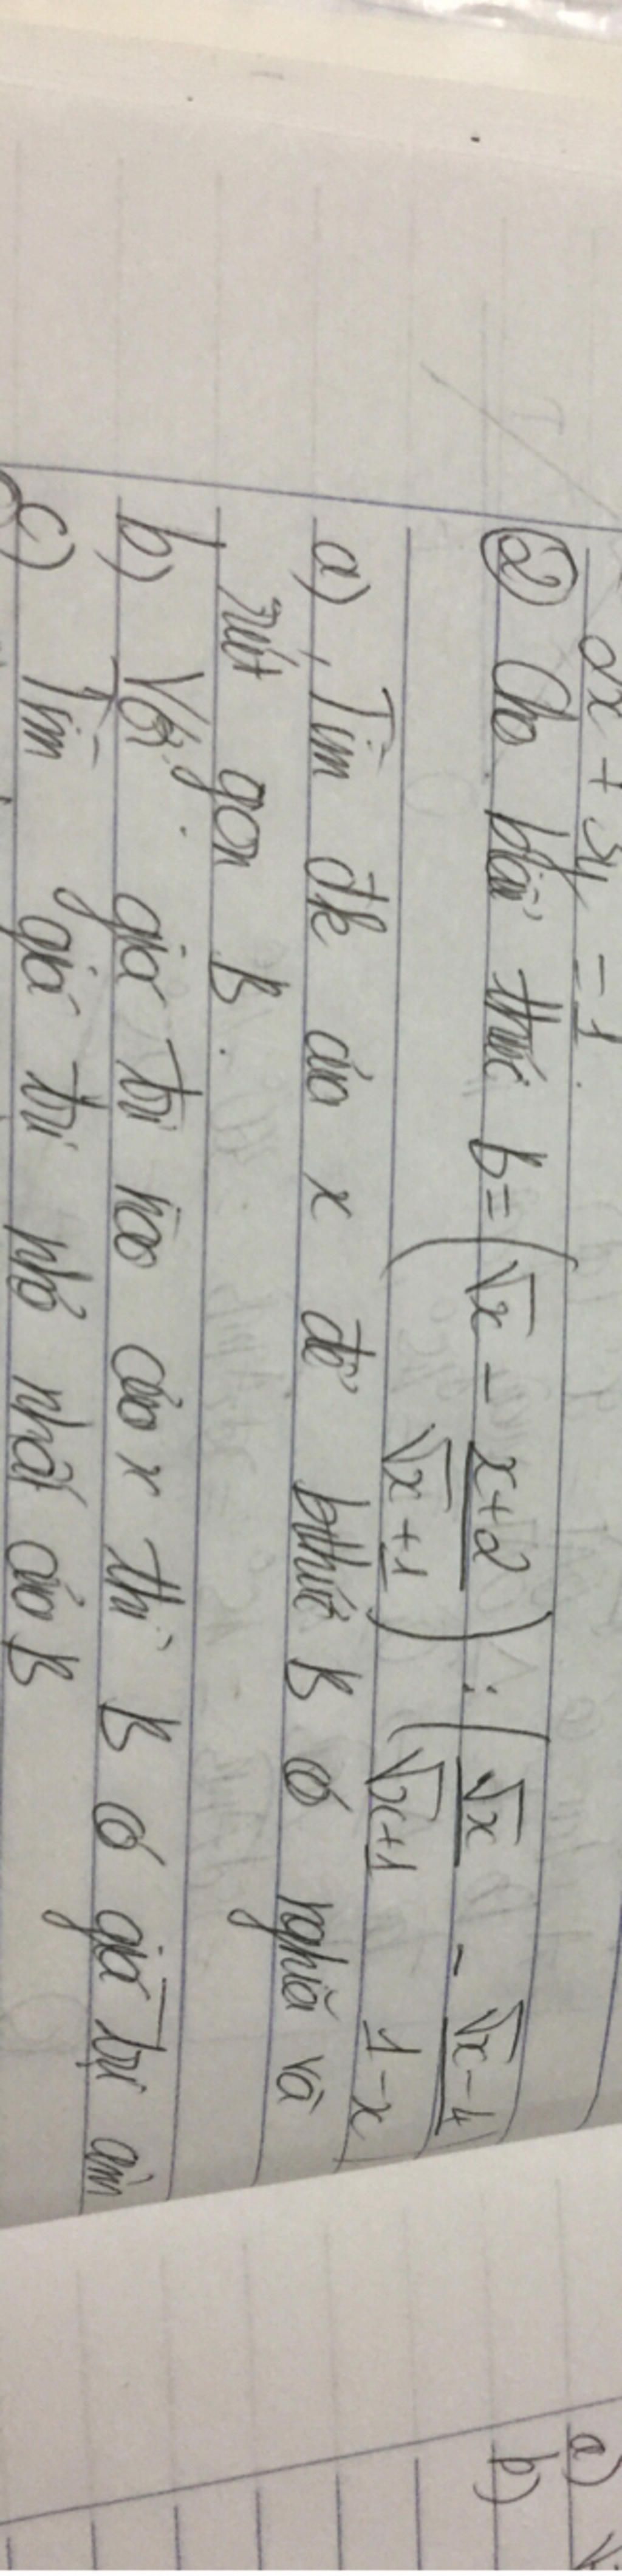 2x + 3y = 1
② Cho biểu thức B = (√x - (x+2)/(√x+1)) : (√x/(√x+1) - (√x-4)/(1-x))
a) Tìm đk của x để bthức B có nghĩa và
rút gọn B.
b) Với giá trị nào của x thì B có giá trị âm
c) Tìm giá trị nhỏ nhất của B
a)
b)